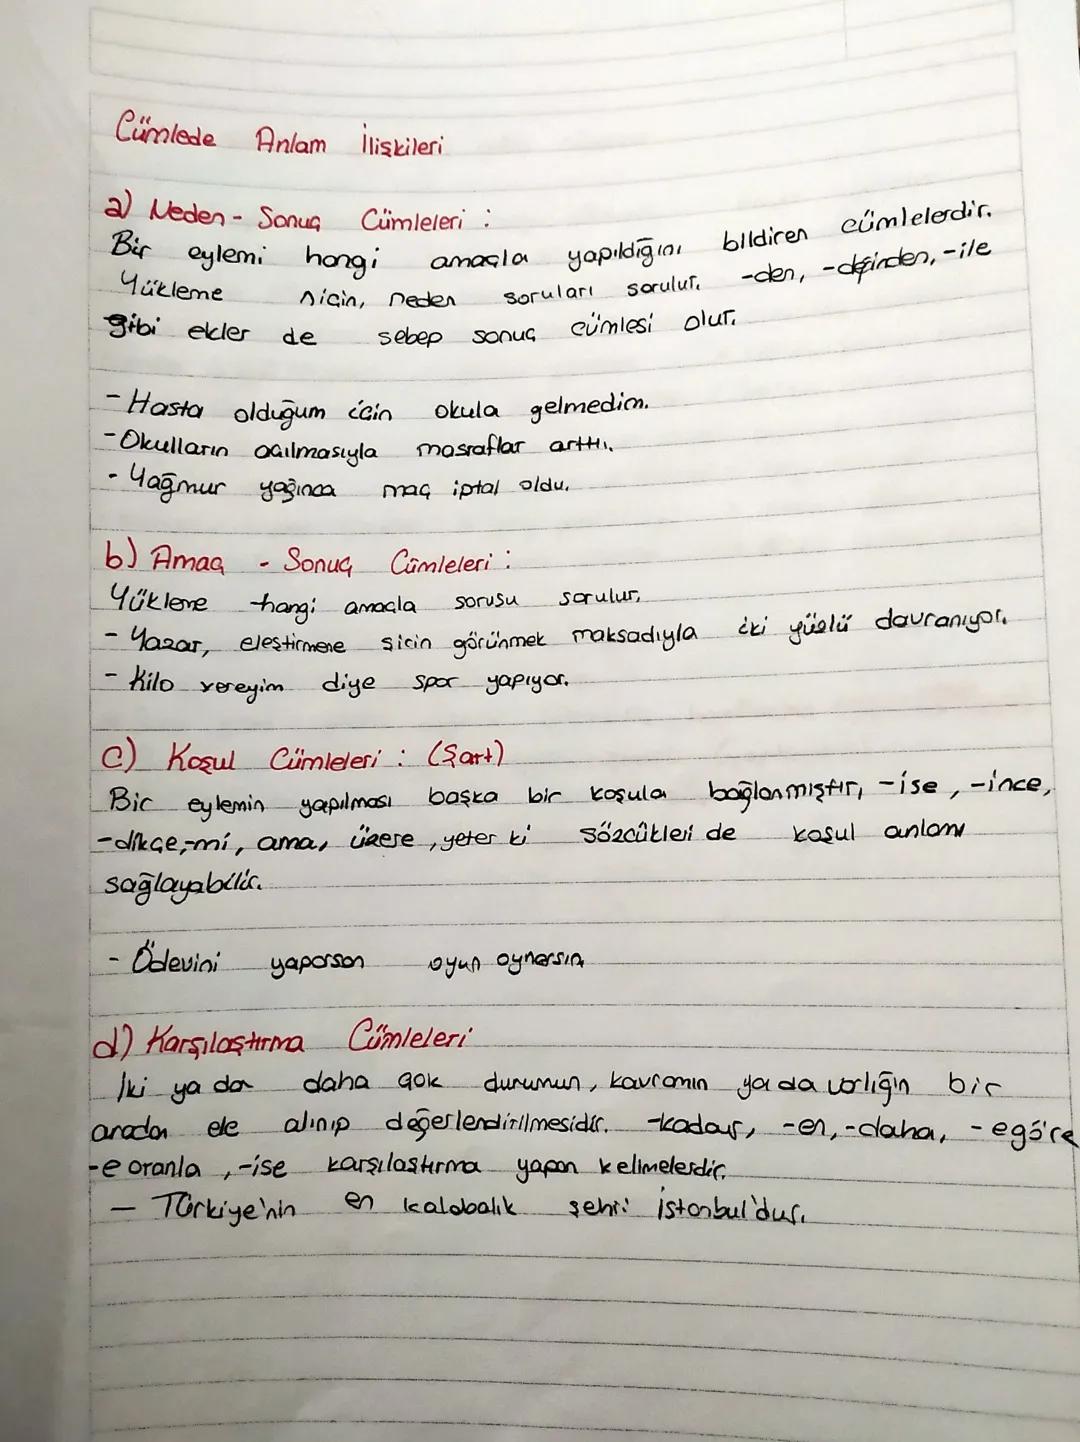 Cümlede Anlam İlişkileri
a) Neden - Sonuç Cümleleri :
Bir eylemi hangi amaçla yapıldığını bildiren cümlelerdir.
Yükleme niçin, neden soruları sorulur. -den, -diğinden, -ile
gibi ekler de sebep sonuç cümlesi olur.
- Hasta olduğum için okula gelmedim.
- Okulların açılmasıyla masraflar arttı.
- Yağmur yağınca maç iptal oldu.
b) Amaç - Sonuç Cümleleri :
Yükleme hangi amaçla sorusu sorulur.
- Yazar, eleştirmene şirin görünmek maksadıyla iki yüzlü davranıyor.
- Kilo vereyim diye spor yapıyor.
c) Koşul Cümleleri : (Şart)
Bir eylemin yapılması başka bir koşula bağlanmıştır, -ise, -ince,
-dikçe, -mi, ama, üzere, yeter ki sözcükleri de koşul anlamı
sağlayabilir.
- Ödevini yaparsan oyun oynarsın.
d) Karşılaştırma Cümleleri
İki ya da daha çok durumun, kavramın ya da varlığın bir
arada ele alınıp değerlendirilmesidir. -kadar, -en, -daha, -e göre
-e oranla, -ise karşılaştırma yapan kelimelerdir.
- Türkiye'nin en kalabalık şehri İstanbul'dur.